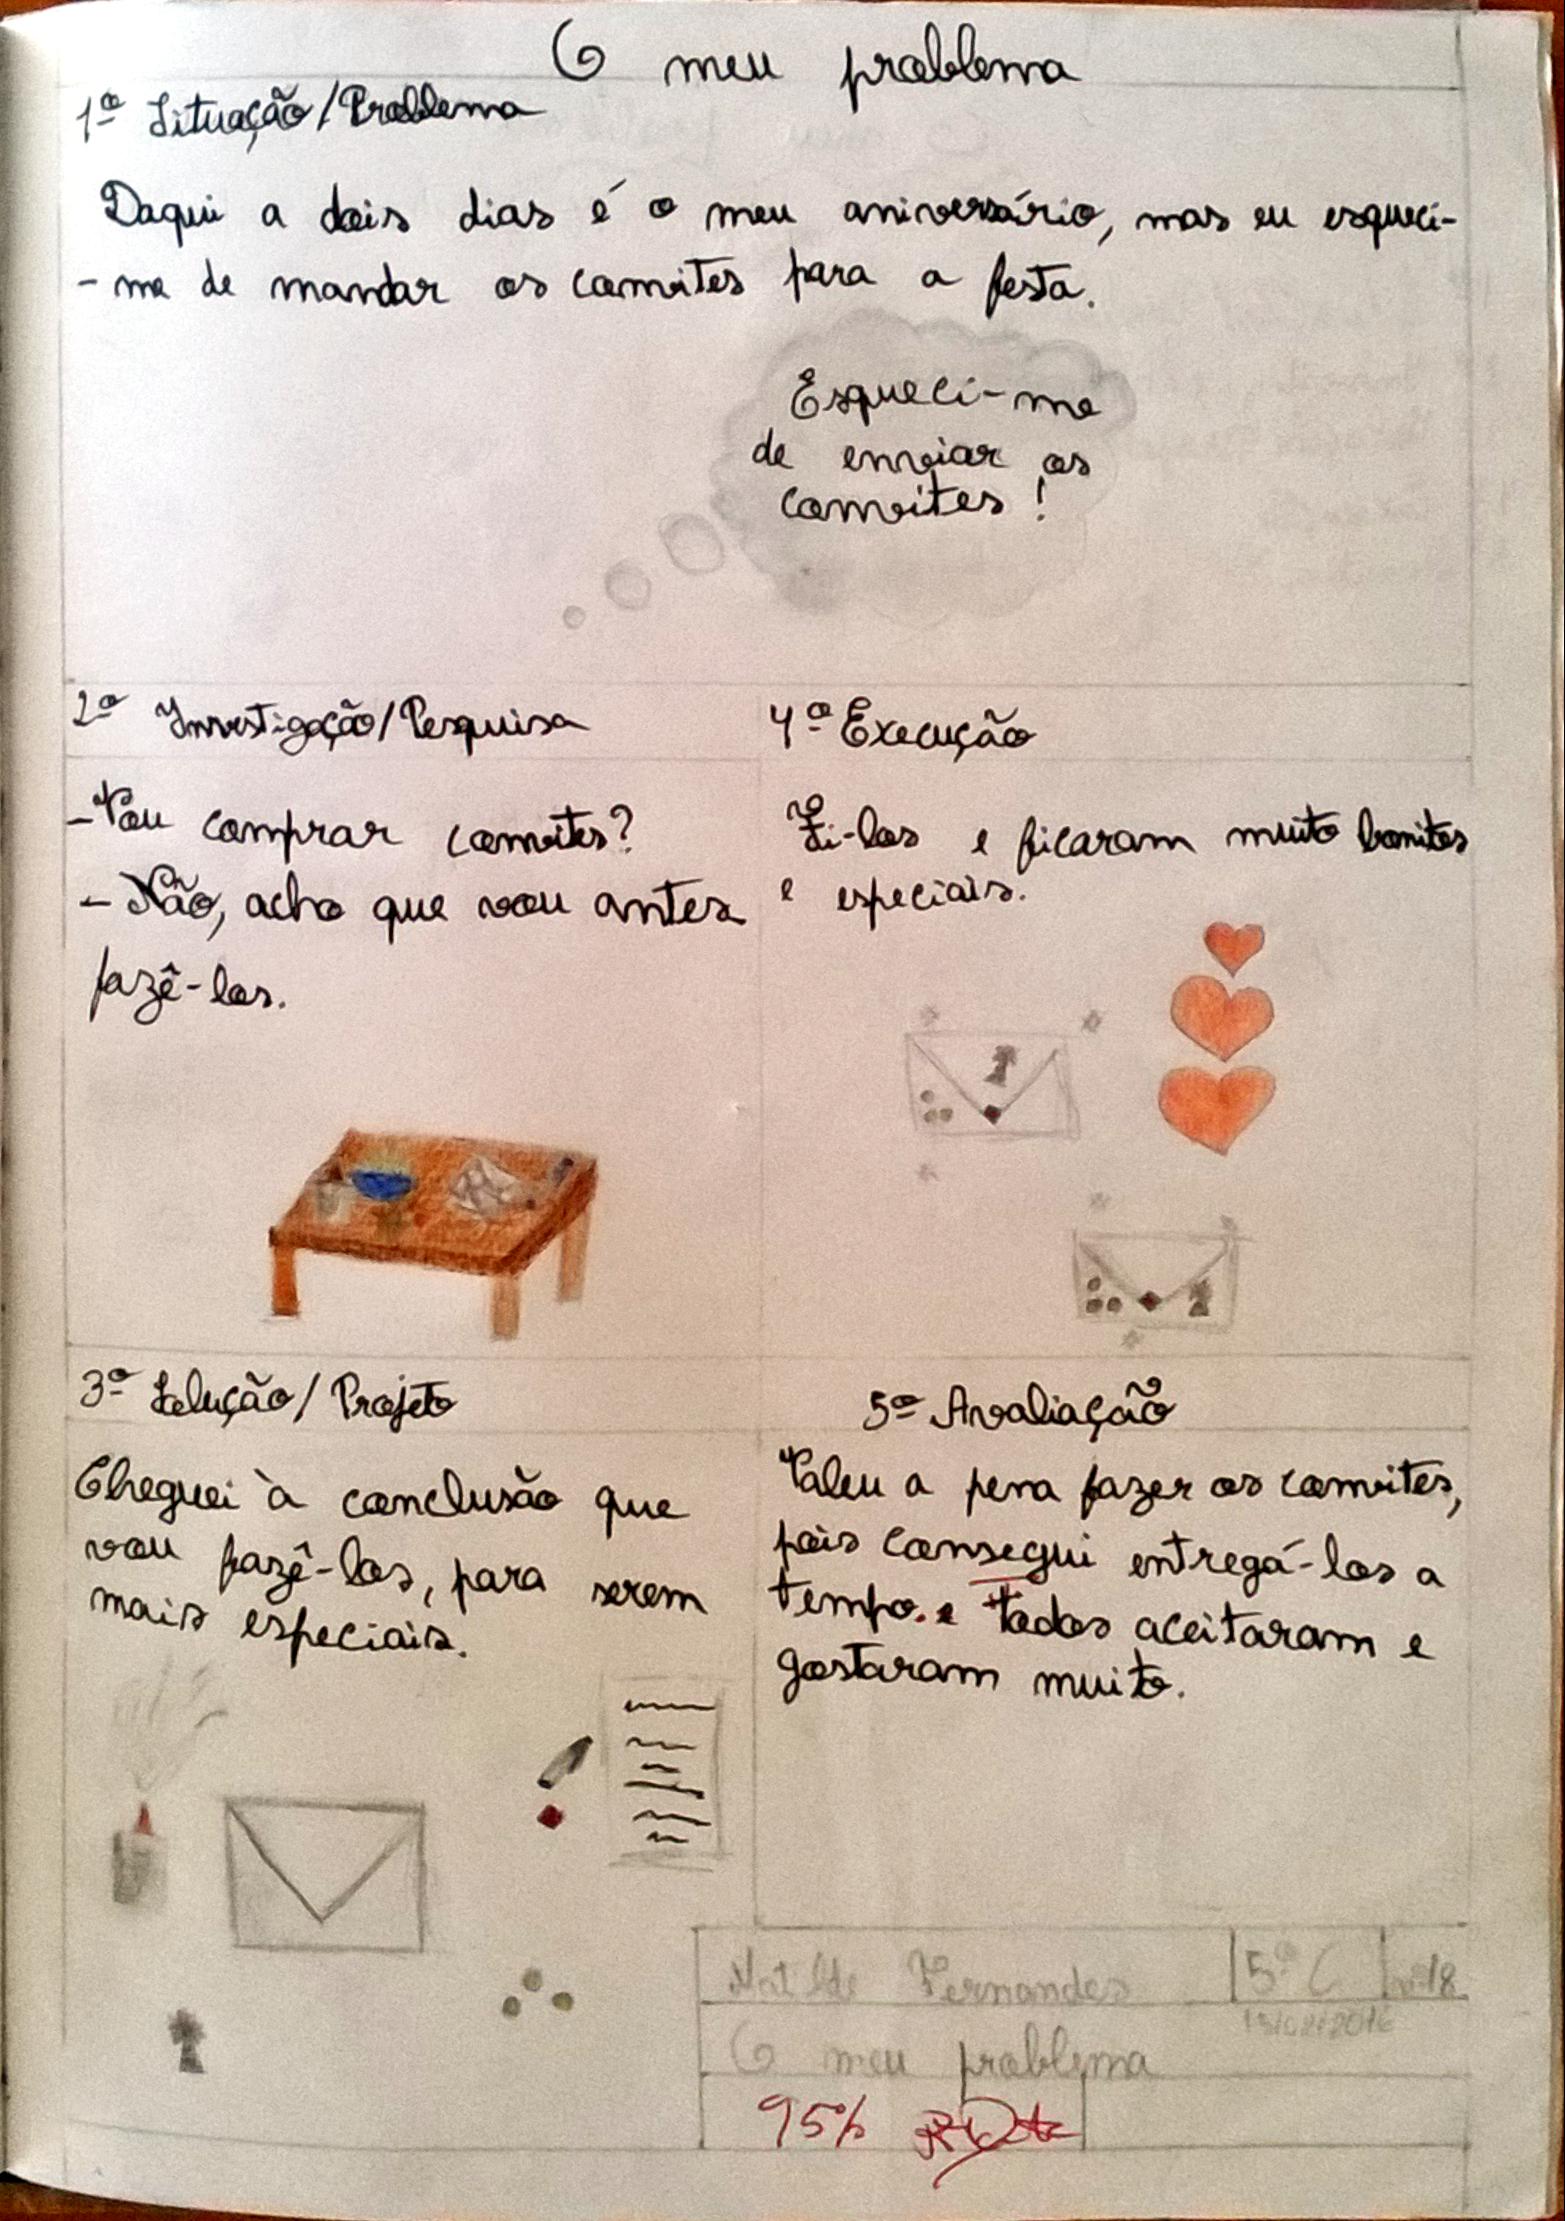 O meu problema
1º Situação/Problema
Daqui a dois dias é o meu aniversário, mas eu esqueci-
-me de mandar os convites para a festa.
Esqueci-me
de enviar os
convites!
2º Investigação/Pesquisa
-Vou comprar convites?
- Não, acho que vou antes
fazê-los.
3º Solução/Projeto
Cheguei à conclusão que
vou fazê-los, para serem
mais especiais.
4º Execução
Fi-los e ficaram muito bonitos
e especiais.
5º Avaliação
Valeu a pena fazer os convites,
pois consegui entregá-los a
tempo. e todos aceitaram e
gostaram muito.
Matilde Fernandes 5º C nº18
O meu problema
95%